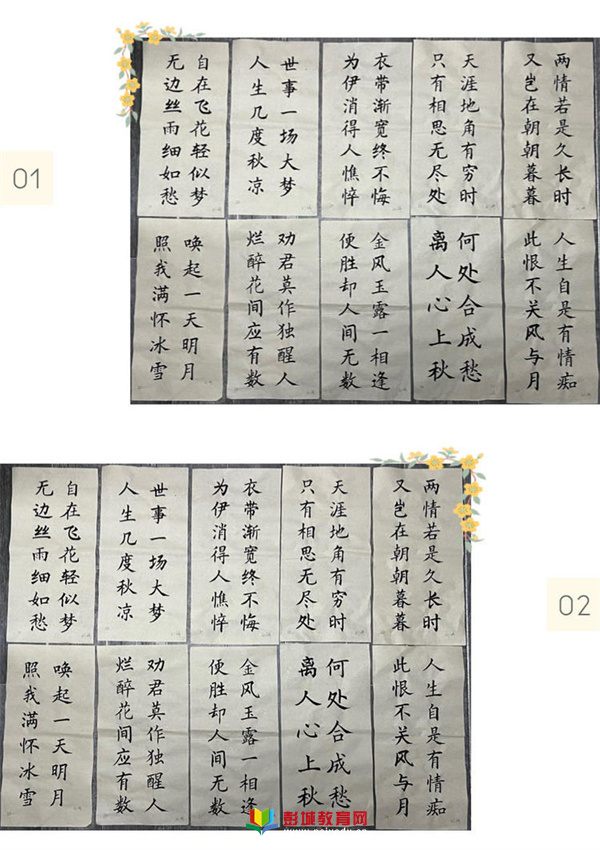 01
两情若是久长时
又岂在朝朝暮暮
天涯地角有穷时
只有相思无尽处
衣带渐宽终不悔
为伊消得人憔悴
世事一场大梦
人生几度秋凉
自在飞花轻似梦
无边丝雨细如愁
人生自是有情痴
此恨不关风与月
何处合成愁
离人心上秋
金风玉露一相逢
便胜却人间无数
劝君莫作独醒人
烂醉花间应有数
唤起一天明月
照我满怀冰雪
02
两情若是久长时
又岂在朝朝暮暮
天涯地角有穷时
只有相思无尽处
衣带渐宽终不悔
为伊消得人憔悴
世事一场大梦
人生几度秋凉
自在飞花轻似梦
无边丝雨细如愁
人生自是有情痴
此恨不关风与月
何处合成愁
离人心上秋
金风玉露一相逢
便胜却人间无数
劝君莫作独醒人
烂醉花间应有数
唤起一天明月
照我满怀冰雪
彭城教育网